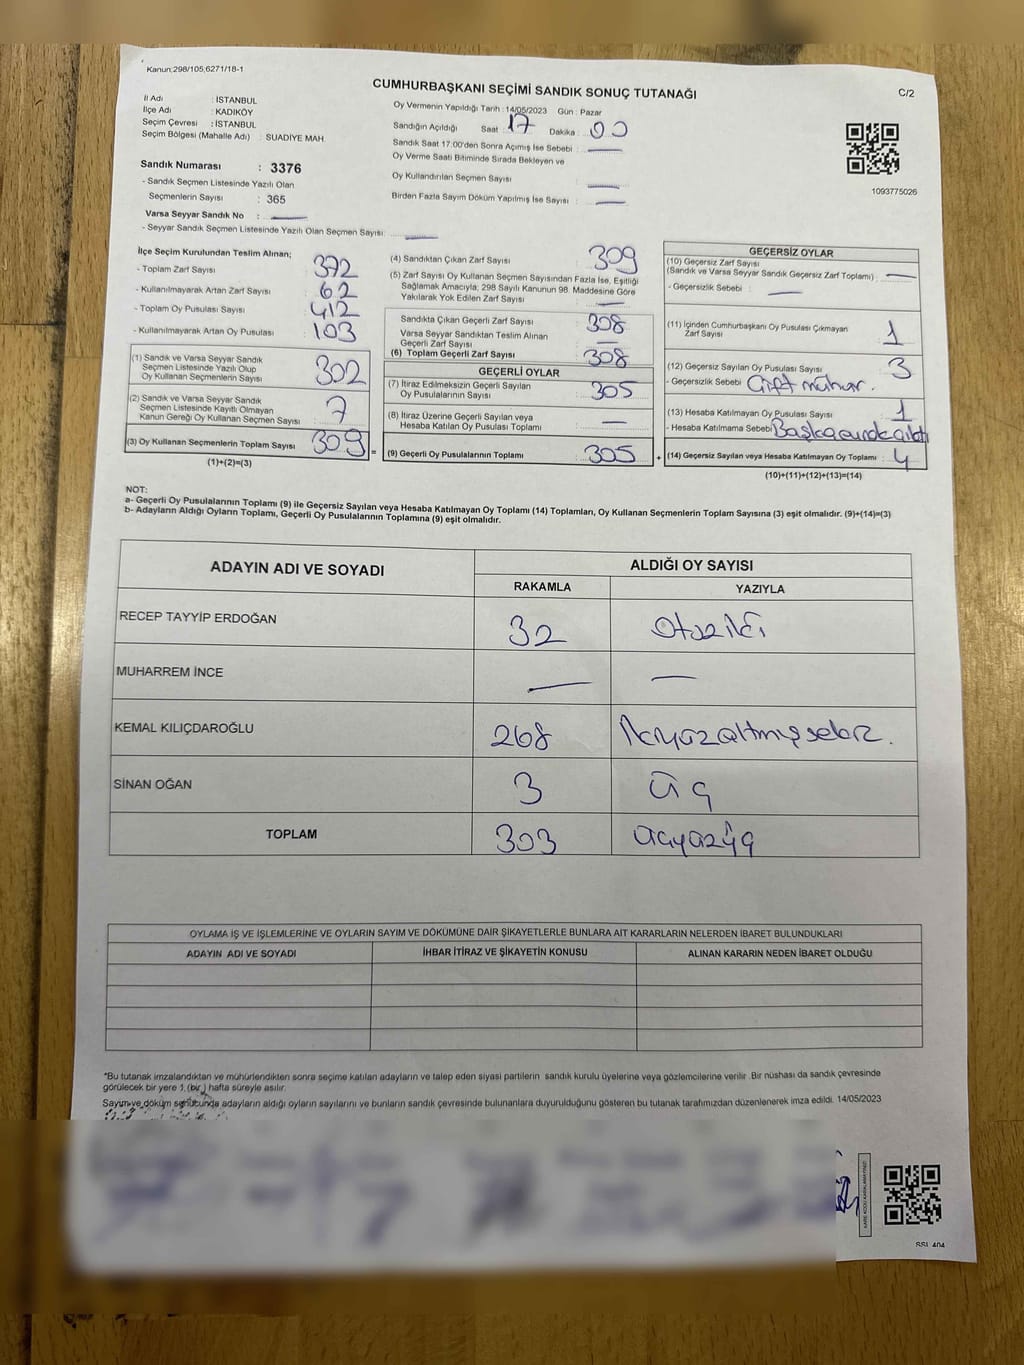 Kanun:298/105,6271/18-1
CUMHURBAŞKANI SEÇİMİ SANDIK SONUÇ TUTANAĞI
C/2
İl Adı : İSTANBUL
İlçe Adı : KADIKÖY
Seçim Çevresi : İSTANBUL
Seçim Bölgesi (Mahalle Adı) : SUADİYE MAH.
Sandık Numarası : 3376
- Sandık Seçmen Listesinde Yazılı Olan
Seçmenlerin Sayısı : 365
Varsa Seyyar Sandık No :
- Seyyar Sandık Seçmen Listesinde Yazılı Olan Seçmen Sayısı:
Oy Vermenin Yapıldığı Tarih : 14/05/2023 Gün : Pazar
Sandığın Açıldığı Saat : 17 Dakika : 00
Sandık Saat 17.00'den Sonra Açımış İse Sebebi :
Oy Verme Saati Bitiminde Sırada Bekleyen ve
Oy Kullandırılan Seçmen Sayısı :
Birden Fazla Sayım Döküm Yapılmış İse Sayısı :
1093775026
İlçe Seçim Kurulundan Teslim Alınan;
- Toplam Zarf Sayısı : 372
- Kullanılmayarak Artan Zarf Sayısı : 62
- Toplam Oy Pusulası Sayısı : 412
- Kullanılmayarak Artan Oy Pusulası : 103
(1) Sandık ve Varsa Seyyar Sandık
Seçmen Listesinde Yazılı Olup
Oy Kullanan Seçmenlerin Sayısı : 302
(2) Sandık ve Varsa Seyyar Sandık
Seçmen Listesinde Kayıtlı Olmayan
Kanun Gereği Oy Kullanan Seçmen Sayısı : 7
(3) Oy Kullanan Seçmenlerin Toplam Sayısı : 309 =
(1)+(2)=(3)
(4) Sandıktan Çıkan Zarf Sayısı : 309
(5) Zarf Sayısı Oy Kullanan Seçmen Sayısından Fazla İse, Eşitliği
Sağlamak Amacıyla; 298 Sayılı Kanunun 98. Maddesine Göre
Yakılarak Yok Edilen Zarf Sayısı :
Sandıkta Çıkan Geçerli Zarf Sayısı : 308
Varsa Seyyar Sandıktan Teslim Alınan
Geçerli Zarf Sayısı :
(6) Toplam Geçerli Zarf Sayısı : 308
GEÇERLİ OYLAR
(7) İtiraz Edilmeksizin Geçerli Sayılan
Oy Pusulalarının Sayısı : 305
(8) İtiraz Üzerine Geçerli Sayılan veya
Hesaba Katılan Oy Pusulası Toplamı :
(9) Geçerli Oy Pusulalarının Toplamı : 305 +
GEÇERSİZ OYLAR
(10) Geçersiz Zarf Sayısı
(Sandık ve Varsa Seyyar Sandık Geçersiz Zarf Toplamı) :
- Geçersizlik Sebebi :
(11) İçinden Cumhurbaşkanı Oy Pusulası Çıkmayan
Zarf Sayısı : 1
(12) Geçersiz Sayılan Oy Pusulası Sayısı : 3
- Geçersizlik Sebebi Çift mühür.
(13) Hesaba Katılmayan Oy Pusulası Sayısı : 1
- Hesaba Katılmama Sebebi
(14) Geçersiz Sayılan veya Hesaba Katılmayan Oy Toplamı : 4
(10)+(11)+(12)+(13)=(14)
NOT:
a- Geçerli Oy Pusulalarının Toplamı (9) ile Geçersiz Sayılan veya Hesaba Katılmayan Oy Toplamı (14) Toplamları, Oy Kullanan Seçmenlerin Toplam Sayısına (3) eşit olmalıdır. (9)+(14)=(3)
b- Adayların Aldığı Oyların Toplamı, Geçerli Oy Pusulalarının Toplamına (9) eşit olmalıdır.
ADAYIN ADI VE SOYADI
ALDIĞI OY SAYISI
RAKAMLA YAZIYLA
RECEP TAYYİP ERDOĞAN 32 otuziki
MUHARREM İNCE
KEMAL KILIÇDAROĞLU 268 ikiyüzaltmışsekiz.
SİNAN OĞAN 3 üç
TOPLAM 303 üçyüzüç
OYLAMA İŞ VE İŞLEMLERİNE VE OYLARIN SAYIM VE DÖKÜMÜNE DAİR ŞİKAYETLERLE BUNLARA AİT KARARLARIN NELERDEN İBARET BULUNDUKLARI
ADAYIN ADI VE SOYADI İHBAR İTİRAZ VE ŞİKAYETİN KONUSU ALINAN KARARIN NEDEN İBARET OLDUĞU
*Bu tutanak imzalandıktan ve mühürlendikten sonra seçime katılan adayların ve talep eden siyasi partilerin sandık kurulu üyelerine veya gözlemcilerine verilir .Bir nüshası da sandık çevresinde
görülecek bir yere 1 (bir ) hafta süreyle asılır.
Sayım ve döküm sonucunda adayların aldığı oyların sayılarını ve bunların sandık çevresinde bulunanlara duyurulduğunu gösteren bu tutanak tarafımızdan düzenlenerek imza edildi. 14/05/2023